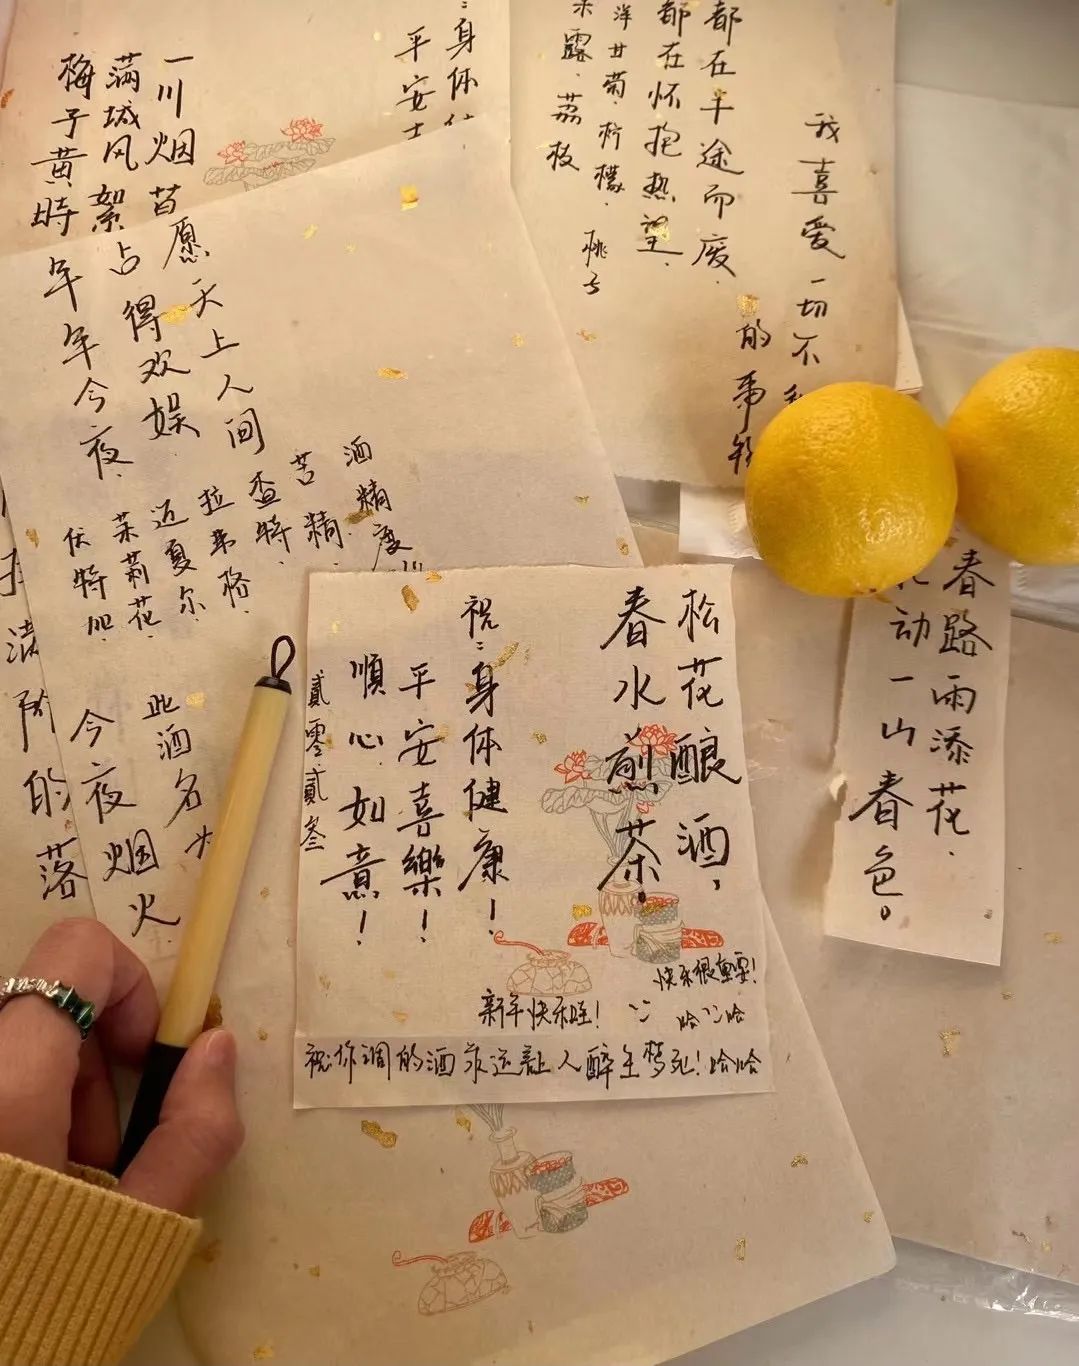 一川烟
满城风絮
梅子黄時
身体
平安
都在半途而废，
都在怀抱热望，
洋甘菊，柠檬，桃子
露，荔枝
我喜爱一切不
的
愿天上人间
占得欢娱
年年今夜，
酒精度
苦精，
查特，
拉弗格，
迈夏尔
茉莉花，
伏特加，
此酒名
今夜烟火
的落
松花酿酒，
春水煎茶。
祝：身体健康！
平安喜樂！
順心如意！
貳零貳叁
快乐很重要！
哈哈
新年快乐哇！
祝你调的酒永远让人醉生梦死！哈哈
春路雨添花，
动一山春色。